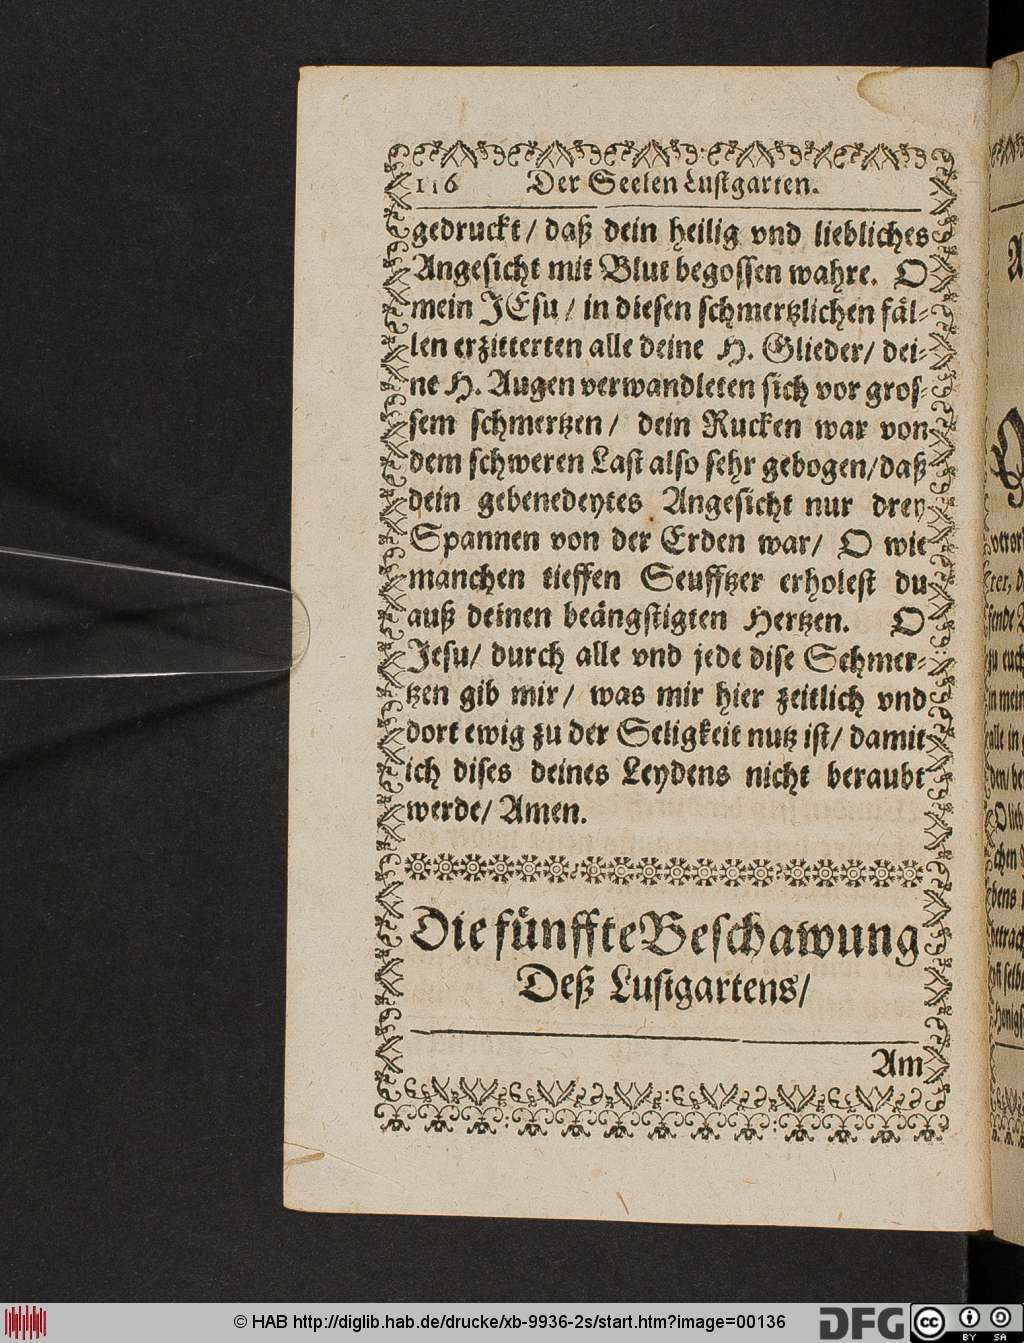 116 Der Seelen Lustgarten.
gedruckt/ daß dein heilig vnd liebliches
Angesicht mit Blut begossen wahre. O
mein JEsu / in diesen schmertzlichen fäl-
len erzitterten alle deine H. Glieder/ dei-
ne H. Augen verwandleten sich vor gros-
sem schmertzen / dein Rucken war von
dem schweren Last also sehr gebogen/ daß
dein gebenedeytes Angesicht nur drey
Spannen von der Erden war/ O wie
manchen tieffen Seufftzer erholest du
auß deinen beängstigten Hertzen. O
Jesu/ durch alle vnd jede dise Schmer-
tzen gib mir/ was mir hier zeitlich vnd
dort ewig zu der Seligkeit nutz ist/ damit
ich dises deines Leydens nicht beraubt
werde/ Amen.
Die fünffte Beschawung
Deß Lustgartens/
Am
© HAB http://diglib.hab.de/drucke/xb-9936-2s/start.htm?image=00136
DFG
cc BY SA